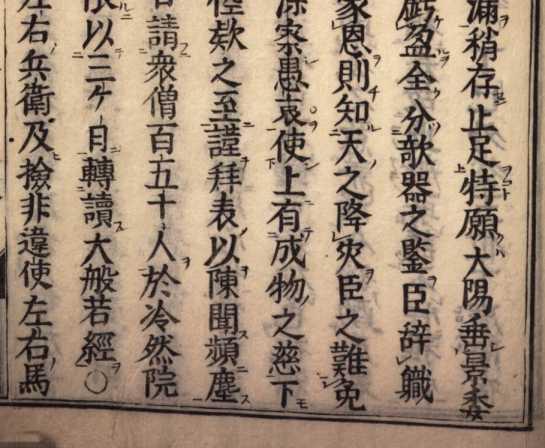 滿稍存止足特願大陽垂景委
虧盈全分欹器之監臣辭軄
家恩則知天之降灾臣之難免
深察愚哀使上有成物之慈下
欵之至謹拜表以陳聞頻塵
請衆僧百五十人於冷然院
以三ヶ日轉讀大般若經○
左右兵衛及撿非違使左右馬